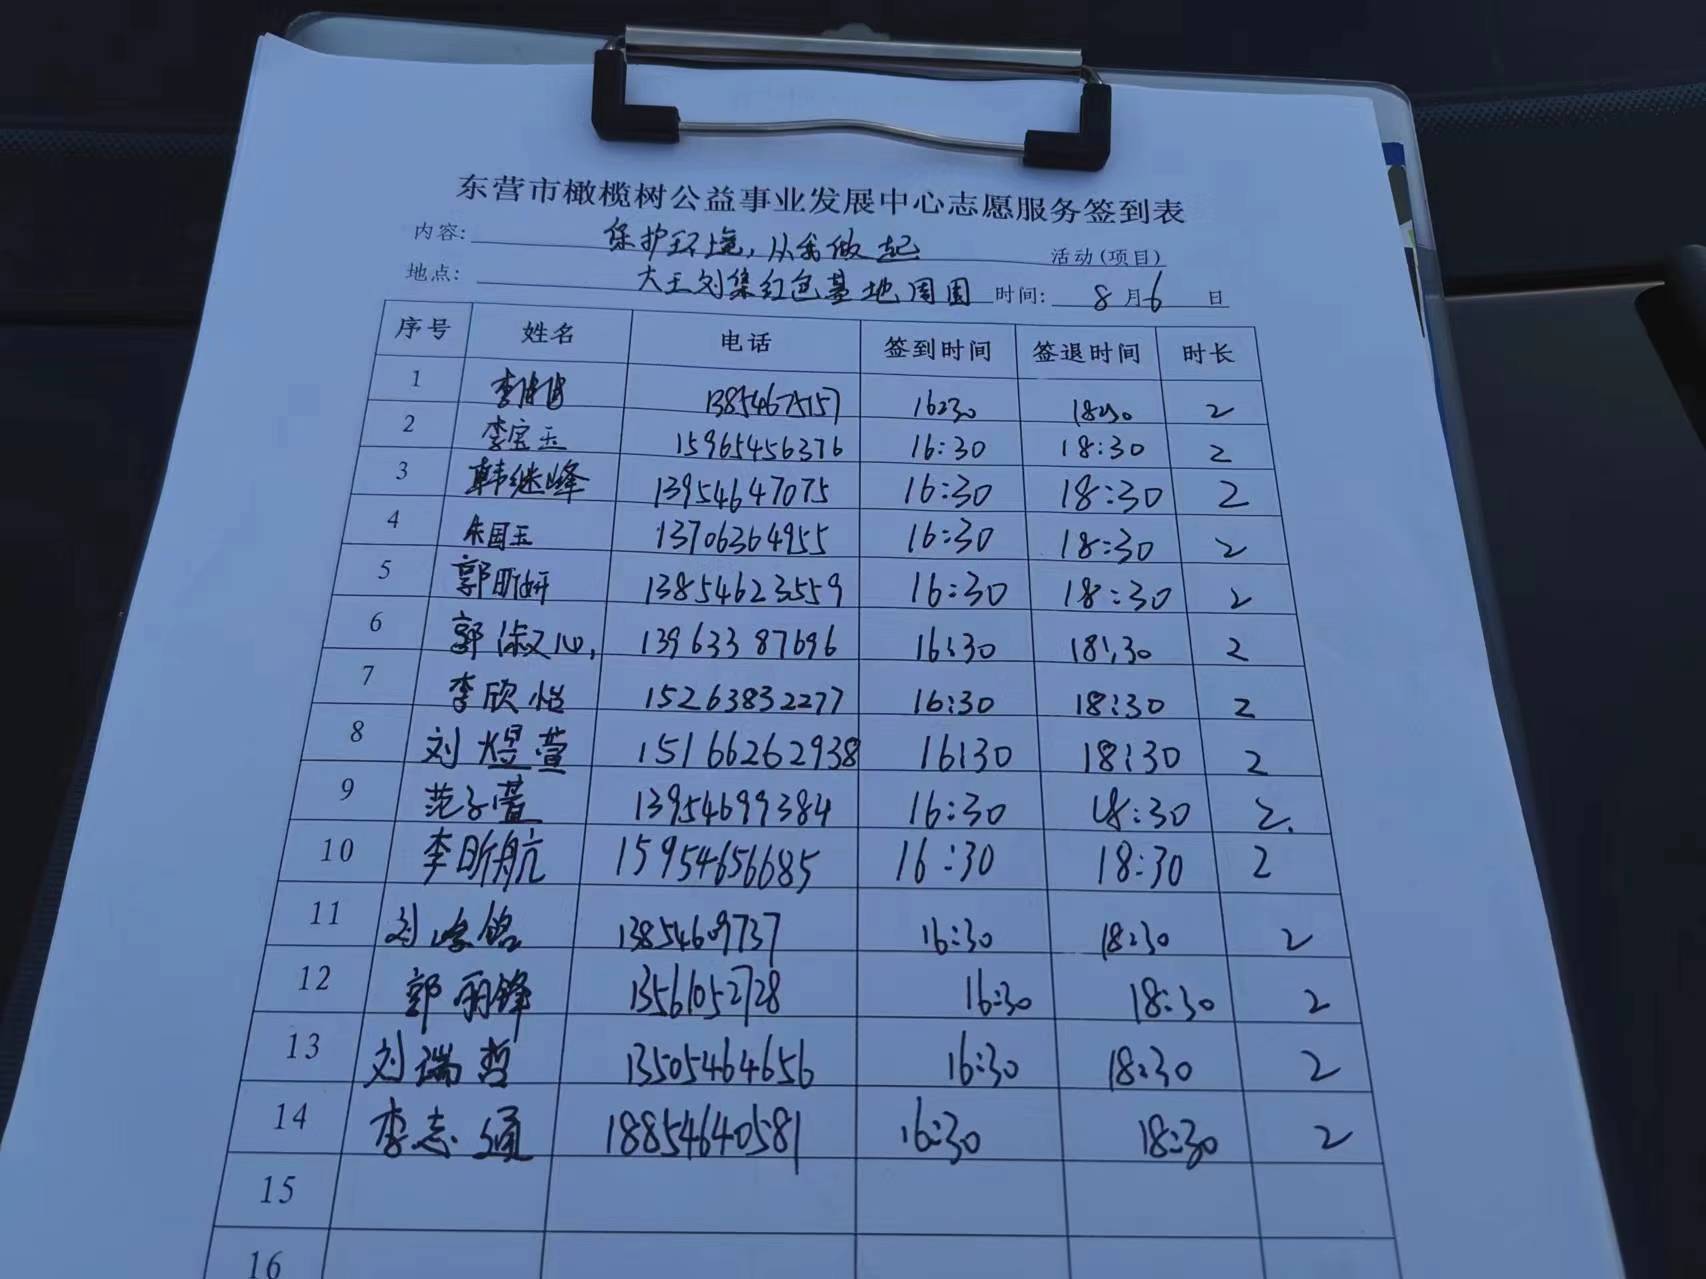 东营市橄榄树公益事业发展中心志愿服务签到表
内容: 保护环境,从我做起 活动(项目)
地点: 大王刘集红包基地周围 时间: 8 月 6 日
序号 姓名 电话 签到时间 签退时间 时长
1 李 16:30 18:30 2
2 李宝玉 15965456376 16:30 18:30 2
3 韩继峰 13954647075 16:30 18:30 2
4 朱国玉 13706364955 16:30 18:30 2
5 郭昕妍 13854623559 16:30 18:30 2
6 郭淑心, 13963387696 16:30 18:30 2
7 李欣怡 15263832277 16:30 18:30 2
8 刘煜萱 15166262938 16:30 18:30 2
9 范子萱 13954699384 16:30 18:30 2.
10 李昕航 15954656685 16:30 18:30 2
11 刘 铭 13854609737 16:30 18:30 2
12 郭雨锋 13561052728 16:30 18:30 2
13 刘瑞哲 13505464656 16:30 18:30 2
14 李志通 18854640581 16:30 18:30 2
15
16